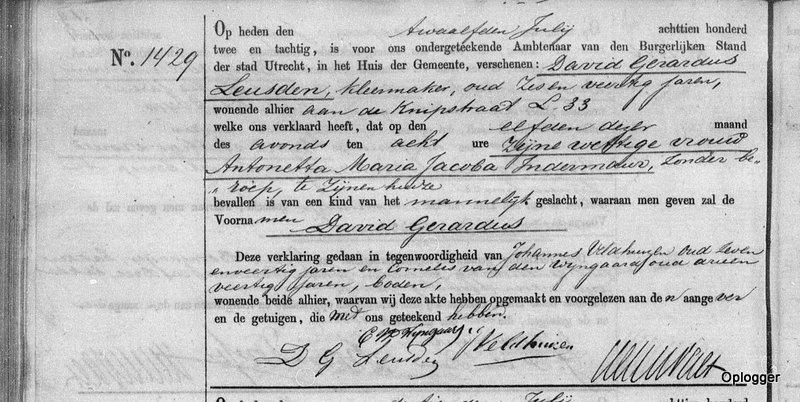 Op heden den twaalfden Julij achttien honderd
twee en tachtig, is voor ons ondergeteekende Ambtenaar van den Burgerlijken Stand
No. 1429
der stad Utrecht, in het Huis der Gemeente, verschenen: David Gerardus
Leusden, kleermaker, oud zes en veertig jaren,
wonende alhier aan de Knipstraat L. 33
welke ons verklaard heeft, dat op den elfden deze maand
des avonds ten acht ure Zijne wettige vrouw
Antonetta Maria Jacoba Indermaur, zonder be-
roep, te zijnen huize
bevallen is van een kind van het mannelijk geslacht, waaraan men geven zal de
Voornamen David Gerardus
Deze verklaring gedaan in tegenwoordigheid van Johannes Veldhuizen oud zeven
enveertig jaren en Cornelis van den Wijngaard oud drieen
veertig jaren, boden,
wonende beide alhier, waarvan wij deze akte hebben opgemaakt en voorgelezen aan den aangever
en de getuigen, die met ons geteekend hebben.
Wijngaard
D G Leusden JVeldhuizen
Oplogger
Julij achttien honderd